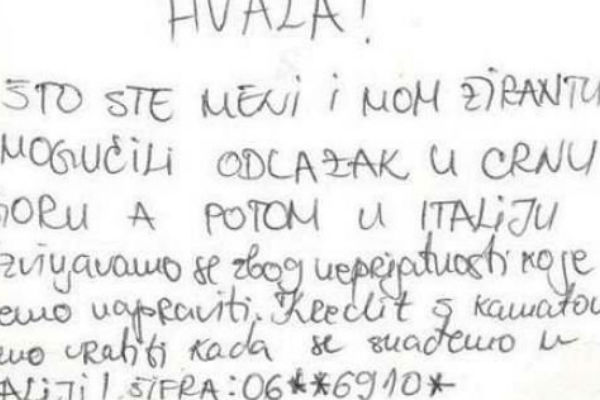 HVALA!
ŠTO STE MENI I MOM ŽIRANTU
MOGUČILI ODLAZAK U CRNU
GORU A POTOM U ITALIJU
zvinjavamo se zbog neprijatnosti koje
emo napraviti. Kredit s kamatom
emo vratiti kada se snađemo u
ALIJI! ŠIFRA: 06**6910*